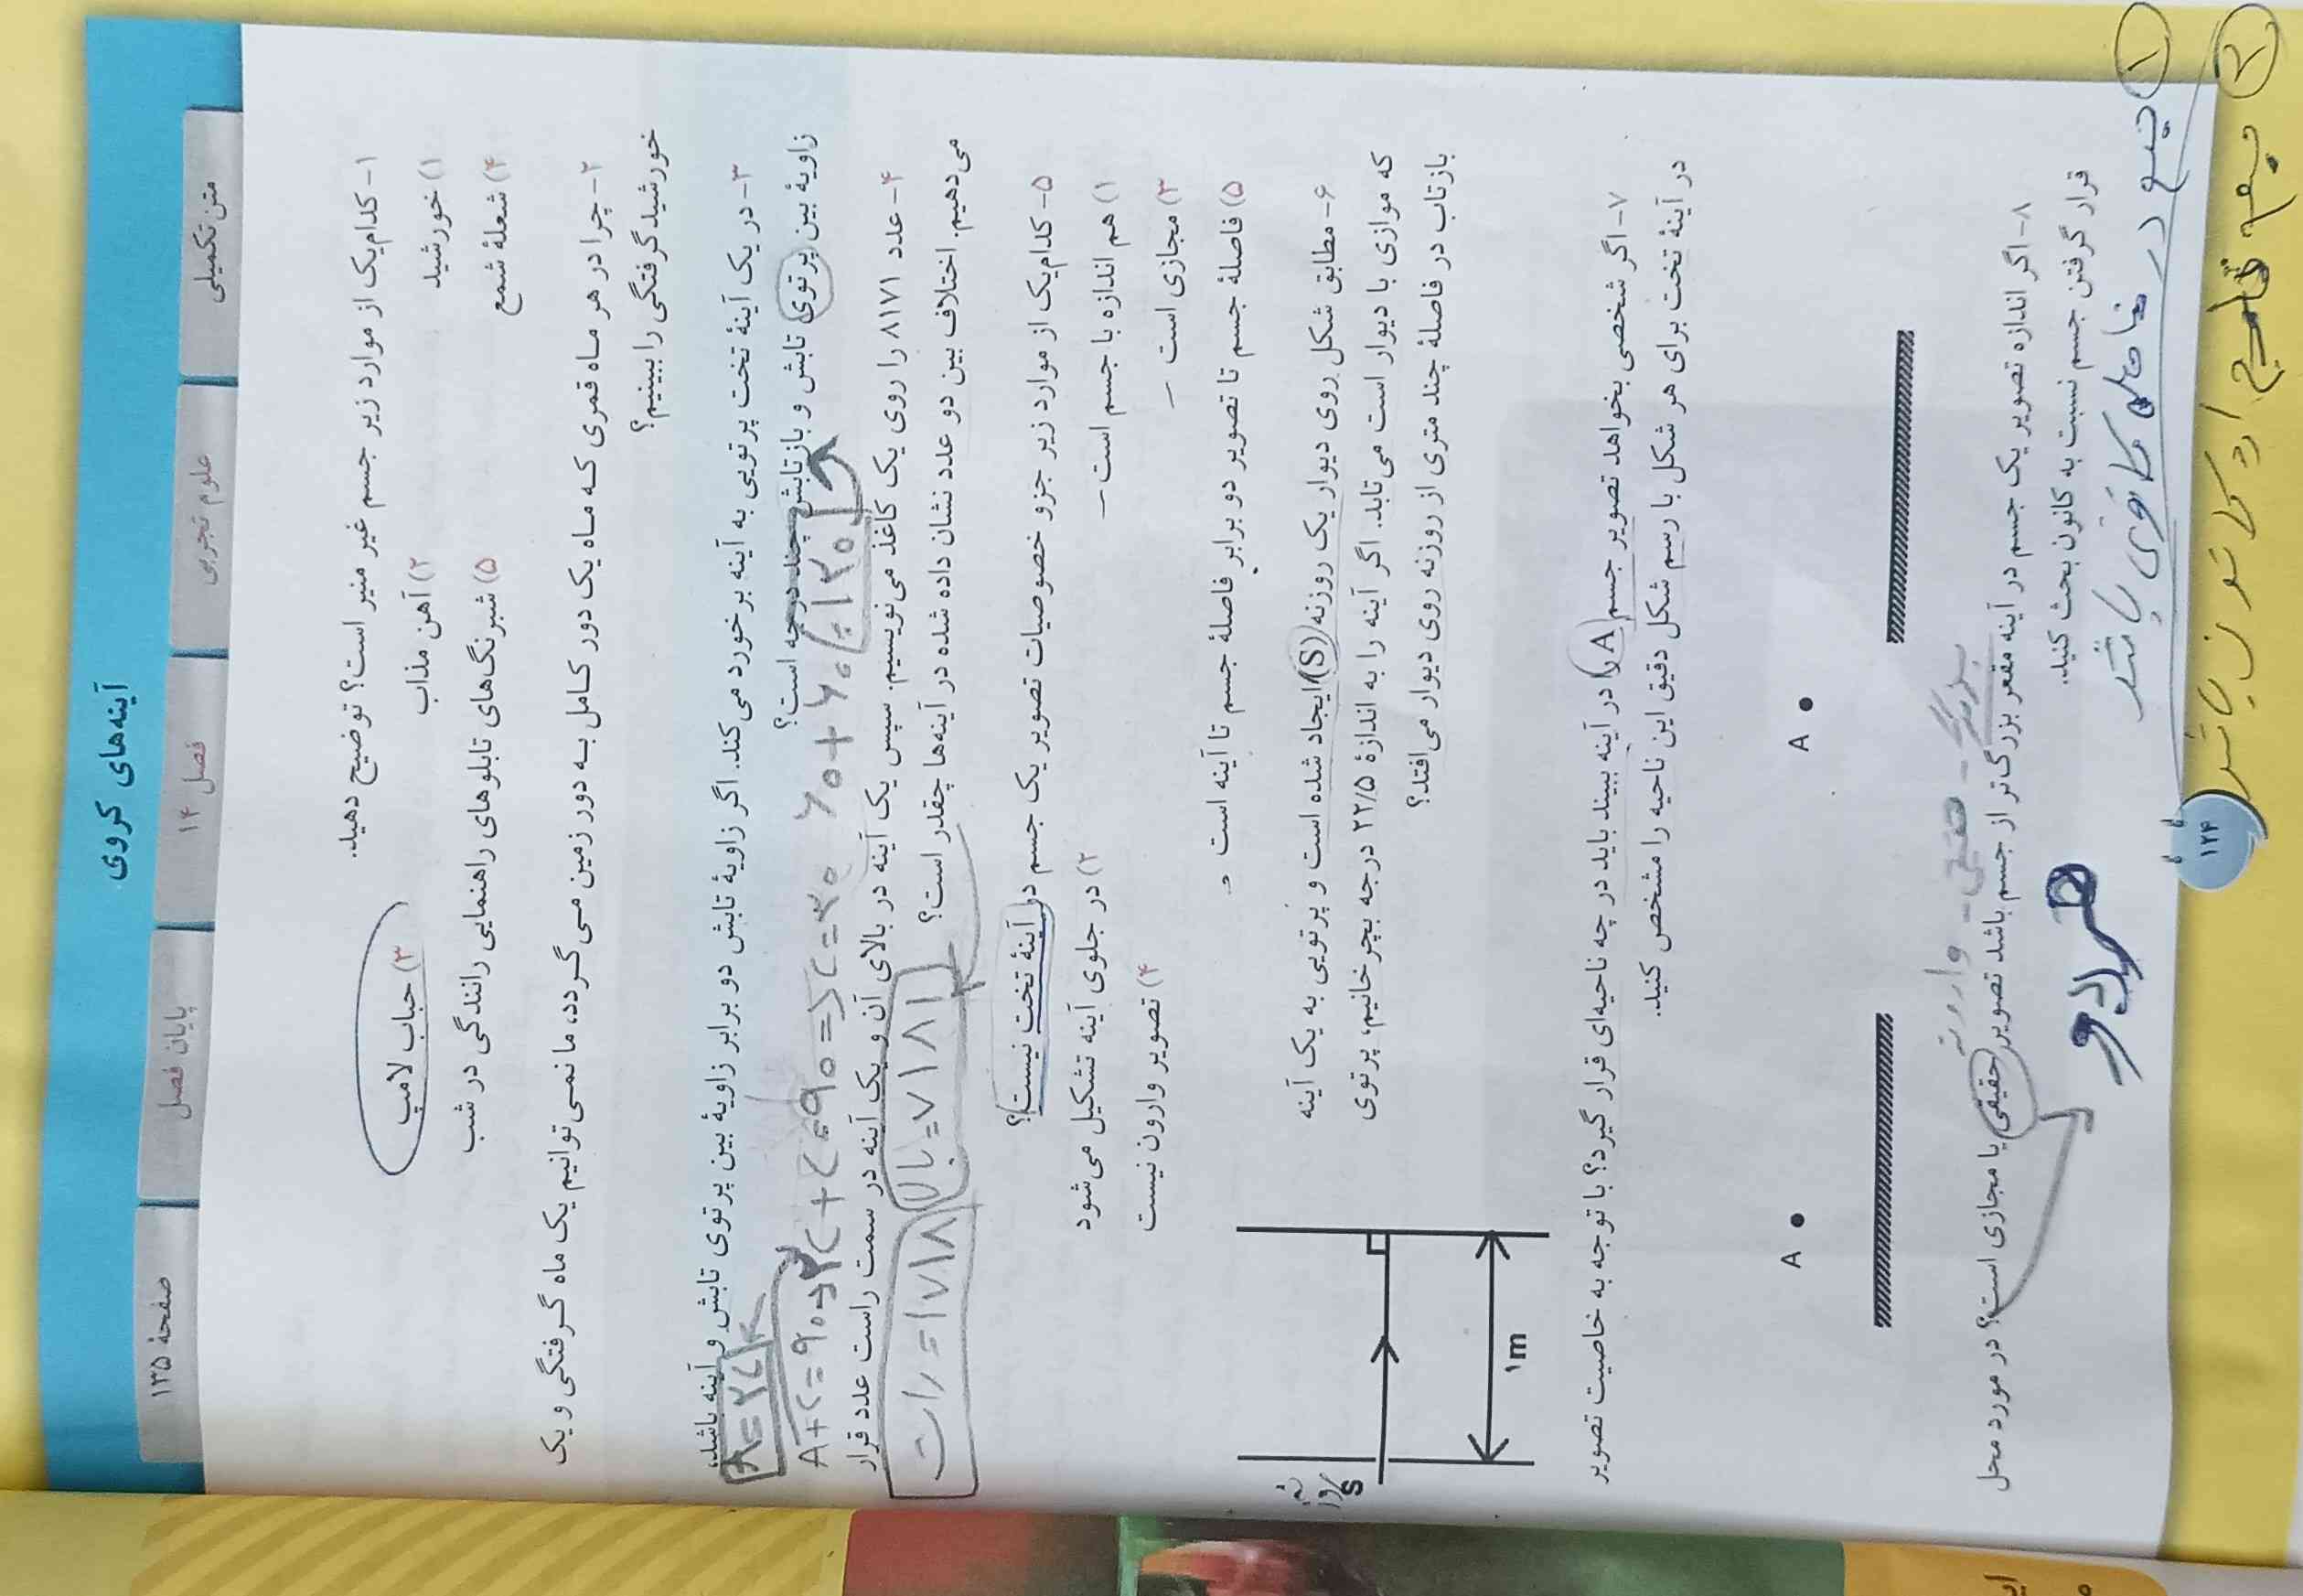 آینه‌های کروی
صفحهٔ ۱۳۵
پایان فصل
فصل ۱۴
علوم تجربی
متن تکمیلی
۱- کدام‌یک از موارد زیر جسم غیر منیر است؟ توضیح دهید.
۱) خورشید
۲) آهن مذاب
۳) حباب لامپ
۴) شعلهٔ شمع
۵) شبرنگ‌های تابلوهای راهنمایی رانندگی در شب
۲- چرا در هر ماه قمری که ماه یک دور کامل به دور زمین می‌گردد، ما نمی‌توانیم یک ماه گرفتگی و یک
خورشیدگرفتگی را ببینیم؟
۳- در یک آینهٔ تخت پرتویی به آینه برخورد می‌کند. اگر زاویهٔ تابش دو برابر زاویهٔ بین پرتوی تابش و آینه باشد،
زاویهٔ بین پرتوی تابش و بازتابش چند درجه است؟
۶۰ + ۶۰ = ۱۲۰
۴- عدد ۸۱۷۱ را روی یک کاغذ می‌نویسیم. سپس یک آینه در بالای آن و یک آینه در سمت راست عدد قرار
می‌دهیم. اختلاف بین دو عدد نشان داده شده در آینه‌ها چقدر است؟
راست = ۱۷۱۸
بالا = ۷۱۸۱
۵- کدام‌یک از موارد زیر جزو خصوصیات تصویر یک جسم در آینهٔ تخت نیست؟
۱) هم اندازه با جسم است
۲) در جلوی آینه تشکیل می‌شود
۳) مجازی است
۴) تصویر وارون نیست
۵) فاصلهٔ جسم تا تصویر دو برابر فاصلهٔ جسم تا آینه است
۶- مطابق شکل روی دیوار یک روزنه (S) ایجاد شده است و پرتویی به یک آینه
که موازی با دیوار است می‌تابد. اگر آینه را به اندازهٔ ۲۲/۵ درجه بچرخانیم، پرتوی
بازتاب در فاصلهٔ چند متری از روزنه روی دیوار می‌افتد؟
روزنه
S
۱m
۷- اگر شخصی بخواهد تصویر جسم A را در آینه ببیند باید در چه ناحیه‌ای قرار گیرد؟ با توجه به خاصیت تصویر
در آینهٔ تخت برای هر شکل با رسم شکل دقیق این ناحیه را مشخص کنید.
A
A
بزرگتر - حقیقی - وارونه
۸- اگر اندازه تصویر یک جسم در آینه مقعر بزرگ‌تر از جسم باشد تصویر حقیقی یا مجازی است؟ در مورد محل
قرار گرفتن جسم نسبت به کانون بحث کنید.
هردو
۱
جسم در فاصله کانونی باشد
۲
جسم خارج از کانون باشد
۱۲۴